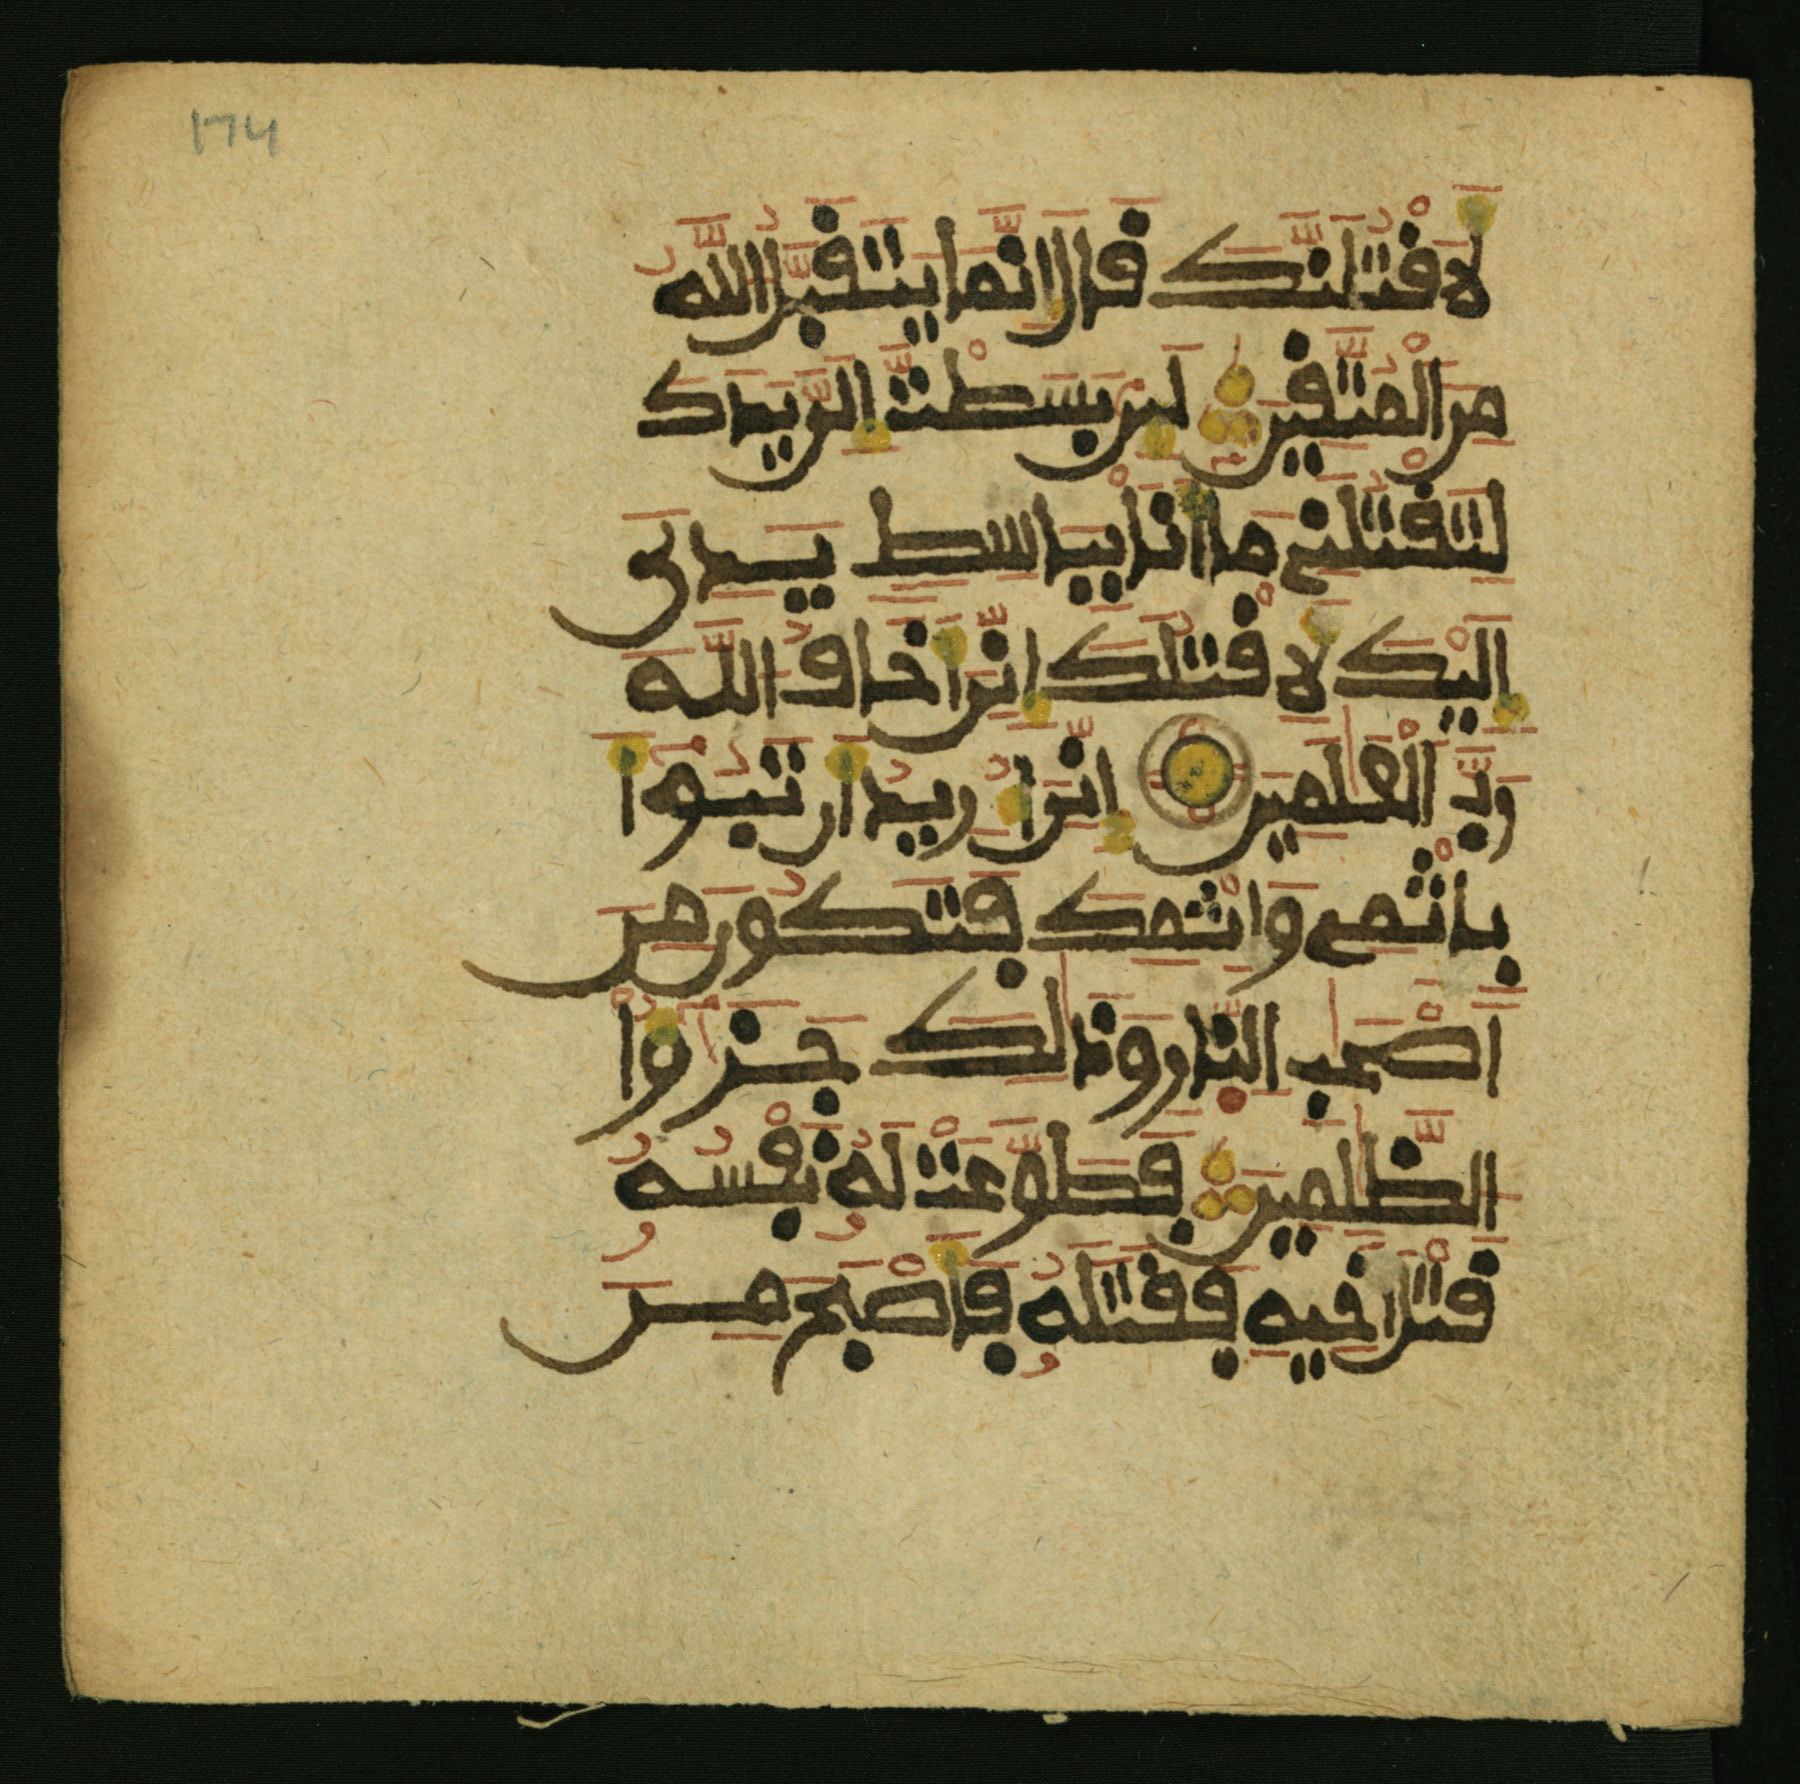 174
لَأَقْتُلَنَّكَ قَالَ إِنَّمَا يَتَقَبَّلُ اللَّهُ
مِنَ الْمُتَّقِينَ لَئِنۢ بَسَطْتَّ إِلَيَّ يَدَكَ
لِتَقْتُلَنِي مَا أَنَا بِبَاسِطٍ يَدِيَ
إِلَيْكَ لِأَقْتُلَكَ إِنِّيَ أَخَافُ اللَّهَ
رَبَّ الْعَٰلَمِينَ إِنِّيَ أُرِيدُ أَن تَبُوأَ
بِإِثْمِي وَإِثْمِكَ فَتَكُونَ مِنْ
أَصْحَٰبِ النَّارِ وَذَٰلِكَ جَزَٰؤُا
الظَّٰلِمِينَ فَطَوَّعَتْ لَهُ نَفْسُهُ
قَتْلَ أَخِيهِ فَقَتَلَهُ فَأَصْبَحَ مِنَ